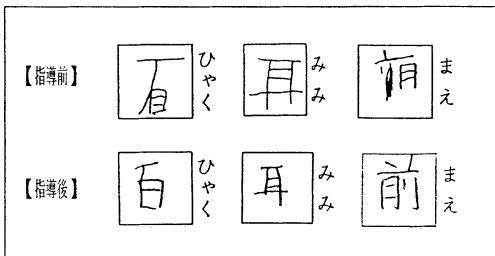 【指導前】 百 ひゃく 耳 みみ 前 まえ
【指導後】 百 ひゃく 耳 みみ 前 まえ